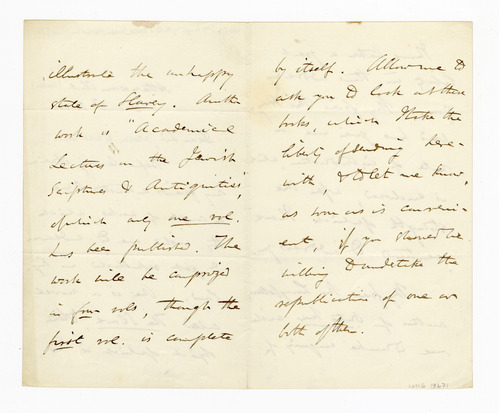 illustrate the unhappy
state of Slavery. Another
work is "Academical
Lectures on the Jewish
Scriptures & Antiquities",
of which only one vol.
has been published. The
work will be comprized
in four vols, though the
first vol. is complete
by itself. Allow me to
ask you to look at these
books, which I take the
liberty of sending here-
with, & to let me know,
as soon as is conveni-
ent, if you should be
willing to undertake the
republication of one or
both of them.